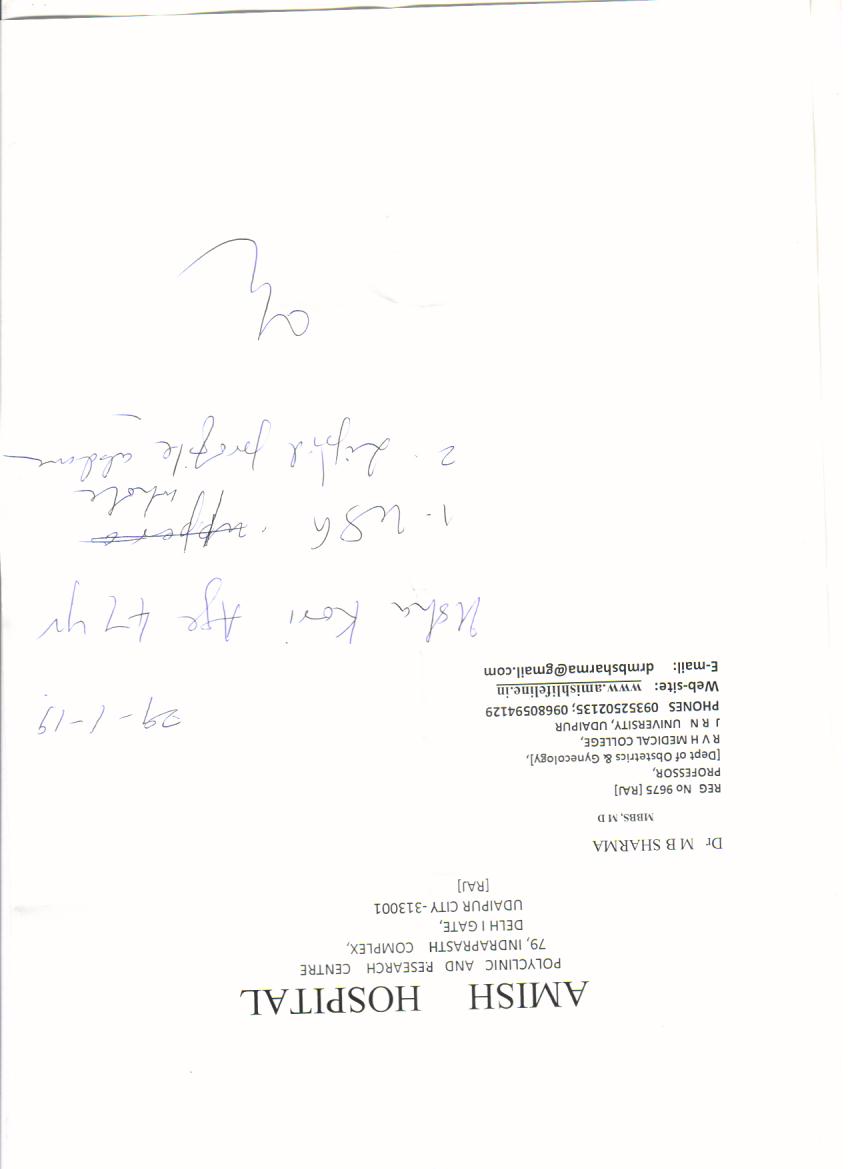 AMISH HOSPITAL
POLYCLINIC AND RESEARCH CENTRE
79, INDRAPRASTH COMPLEX,
DELH I GATE,
UDAIPUR CITY-313001
[RAJ]
Dr M B SHARMA
MBBS, M D
REG No 9675 [RAJ]
PROFESSOR,
[Dept of Obstetrics & Gynecology],
R V H MEDICAL COLLEGE,
J R N UNIVERSITY, UDAIPUR
PHONES 09352502135; 09680594129
Web-site: www.amishlifeline.in
E-mail: drmbsharma@gmail.com
29-1-19
Usha Kori Age 47 yr
1. USG upper
whole
2. Lipid profile abdomen